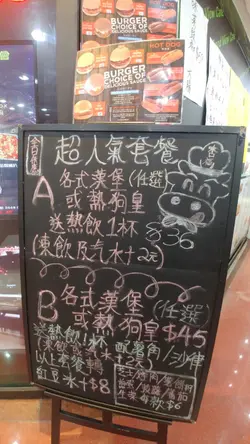 BURGER
CHOICE OF
DELICIOUS SAUCE
HOT DOG
BURGER
CHOICE OF
DELICIOUS SAUCE
超人氣套餐
A 各式漢堡(任選)
或熱狗皇
送熱飲1杯 $36
(凍飲及汽水+2元)
B 各式漢堡(任選)
或熱狗皇 $45
送熱飲1杯 配薯角/沙律
以上套餐轉
紅豆冰+$8
生菜 每款$6